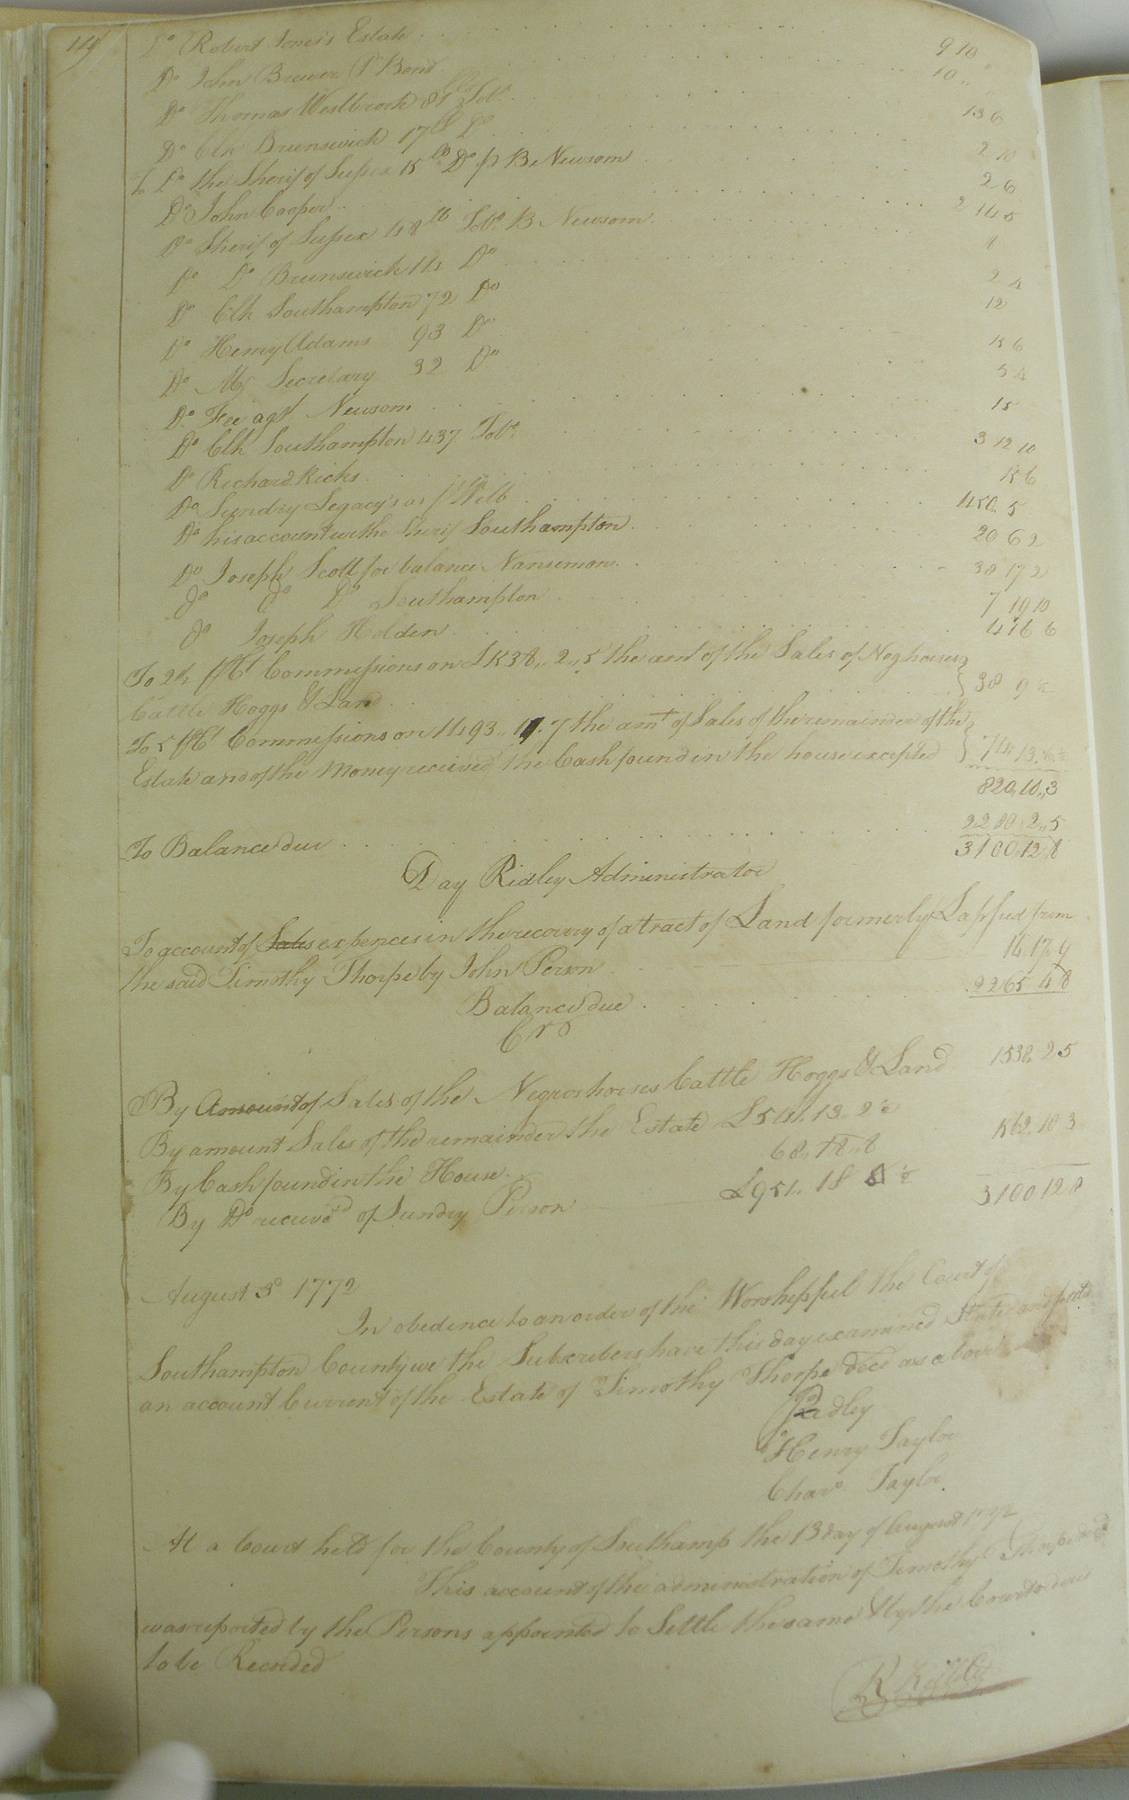 119
Do Robert Jones's Estate 9 10
Do John Brewer Pr Bond 10
Do Thomas Westbrook 81 lb Tobo 13 6
Do Clk Brunswick 17 lb Do 2 10
To Do the Sherif of Sussex 15 lb Do pr B Newsom 2 6
Do John Cooper 2 14 5
Do Sherif of Sussex 48 lb Tobo B Newsom
Do Do Brunswick 14 Do 2 4
Do Clk Southampton 72 Do 12
Do Henry Adams 93 Do 15 6
Do Mr Secretary 32 Do 5 4
Do Fee agt Newsom 15
Do Clk Southampton 437 Tobo 3 12 10
Do Richard Ricks 15 6
Do Sundry Legacy's as pr Will 450 5
Do his account wth the Sherif Southampton 20 6 2
Do Joseph Scott for balance Nansemon 38 17 2
Do Do Do Southampton 7 19 10
Do Joseph Holden 4 16 6
To 2½ pCt Commissions on £1538,, 2,, 5 the amt of the Sales of Neg horses 38 9
Cattle Hoggs & Land
To 5 pCt Commissions on 1493,, 11. 7 the amt of Sales of the remainder of the
Estate and of the Money received the Cash found in the house excepted 74 13
820,, 10,, 3
To Balance due 2280,, 2,, 5
3100,, 12,, 8
Day Ridley Administrator
To account of Sales expences in the recovery of a tract of Land formerly Lapsed from
the said Timothy Thorpe by John Person 14. 17. 9
Balance due 2265 4 8
Cro
By Amount of Sales of the Negros horses Cattle Hoggs & Land 1538,, 2 5
By amount Sales of the remainder the Estate £541,, 13. 2½
By Cash found in the House 68,, 18,, 8 1562. 10 3
By Do receivd of Sundry Person £951,, 18 ½ 3100 12 8
August 3d 1772
In obedience to an order of the Worshipful the Court of
Southampton County we the Subscribers have this day examined Stated and
an account Current of the Estate of Timothy Thorpe decd as above
Ridley
Henry Taylor
Chars Taylor
At a Court held for the County of Southamp the 13 day of August 1772
This account of the administration of Timothy Thorpe decd
was reported by the Persons appointed to Settle the same & by the Court
to be Recorded
R Kello